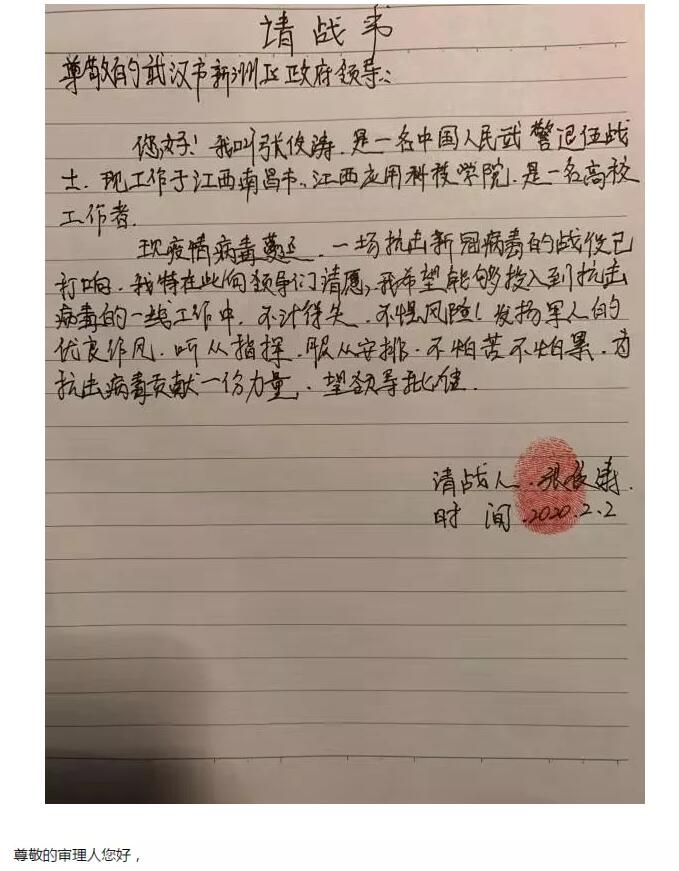 请战书
尊敬的武汉市新洲区政府领导:
您好!我叫张俊涛.是一名中国人民武警退伍战
士.现工作于江西南昌市.江西应用科技学院.是一名高校
工作者.
现疫情病毒蔓延.一场抗击新冠病毒的战役已
打响.我特在此向领导们请愿,我希望能够投入到抗击
病毒的一线工作中.不计得失.不惧风险!发扬军人的
优良作风.听从指挥.服从安排.不怕苦不怕累.为
抗击病毒贡献一份力量.望领导批准.
请战人.张俊涛.
时 间.2020.2.2
尊敬的审理人您好，